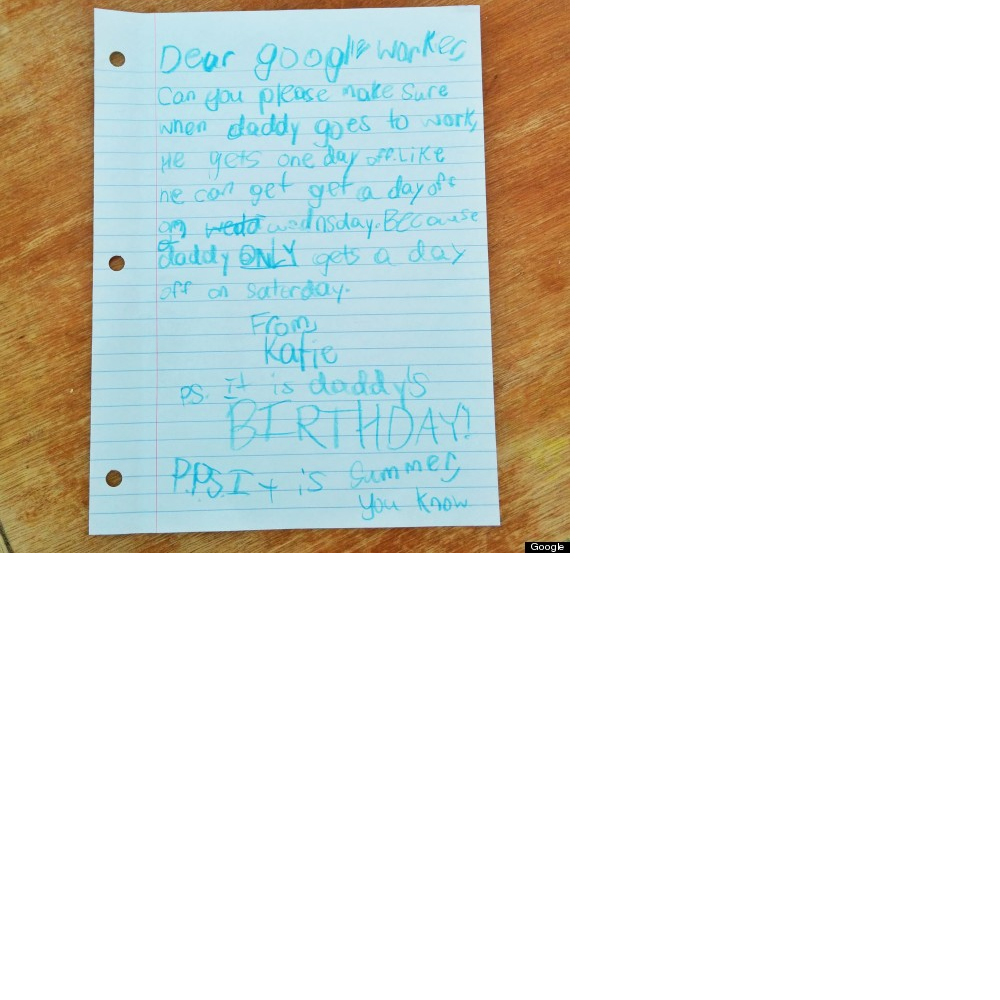 Dear google worker,
Can you please make sure
when daddy goes to work,
He gets one day off. Like
he can get get a day off
on wednsday. BECause
daddy ONLY gets a day
off on saterday.
From,
Katie
PS. It is daddy's
BIRTHDAY!
P.P.S. It is Summer,
you know
Google